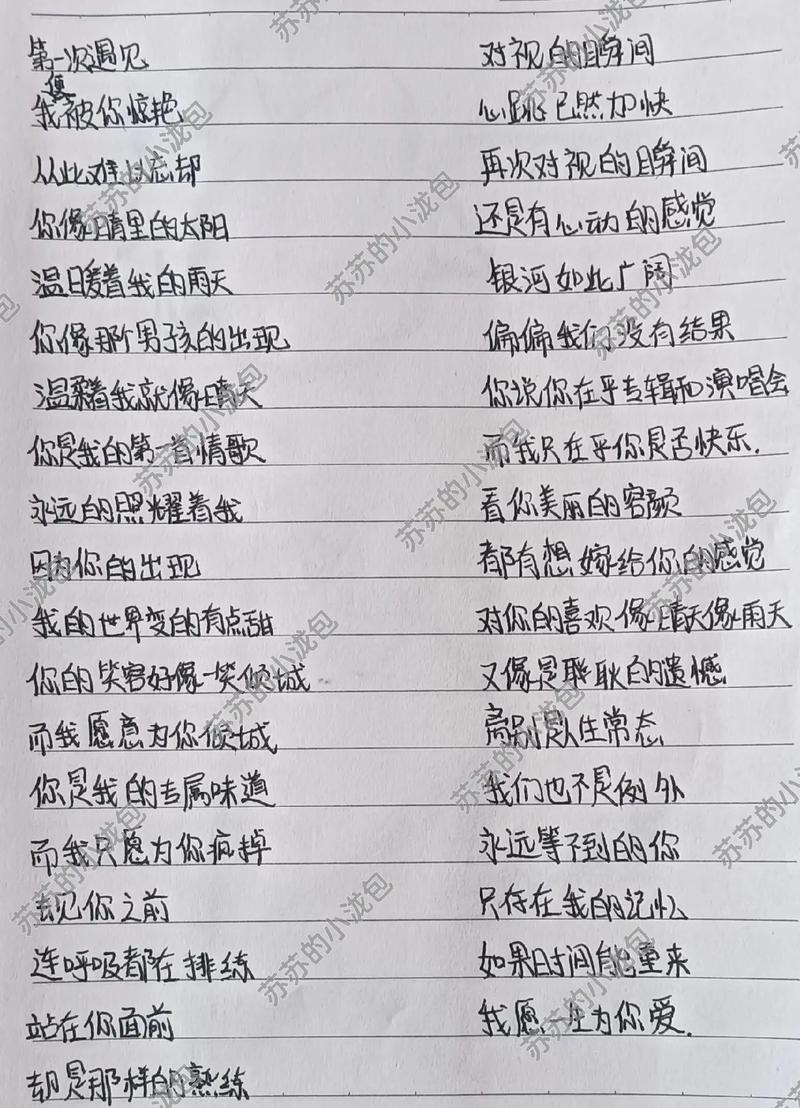 第一次遇见
我便被你惊艳
从此难以忘却
你像晴里的太阳
温暖着我的雨天
你像那个男孩的出现
温柔着我就像晴天
你是我的第一首情歌
永远的照耀着我
因为你的出现
我的世界变的有点甜
你的笑容好像一笑倾城
而我愿意为你倾城
你是我的专属味道
而我只愿为你疯掉
去见你之前
连呼吸都在排练
站在你面前
却是那样的熟练
对视的瞬间
心跳已然加快
再次对视的瞬间
还是有心动的感觉
银河如此广阔
偏偏我们没有结果
你说你在乎专辑和演唱会
而我只在乎你是否快乐.
看你美丽的容颜
都有想嫁给你的感觉
对你的喜欢像晴天像雨天
又像是耿耿的遗憾
离别是人生常态
我们也不是例外
永远等不到的你
只存在我的记忆
如果时间能重来
我愿一生为你爱.
苏苏的小泷包